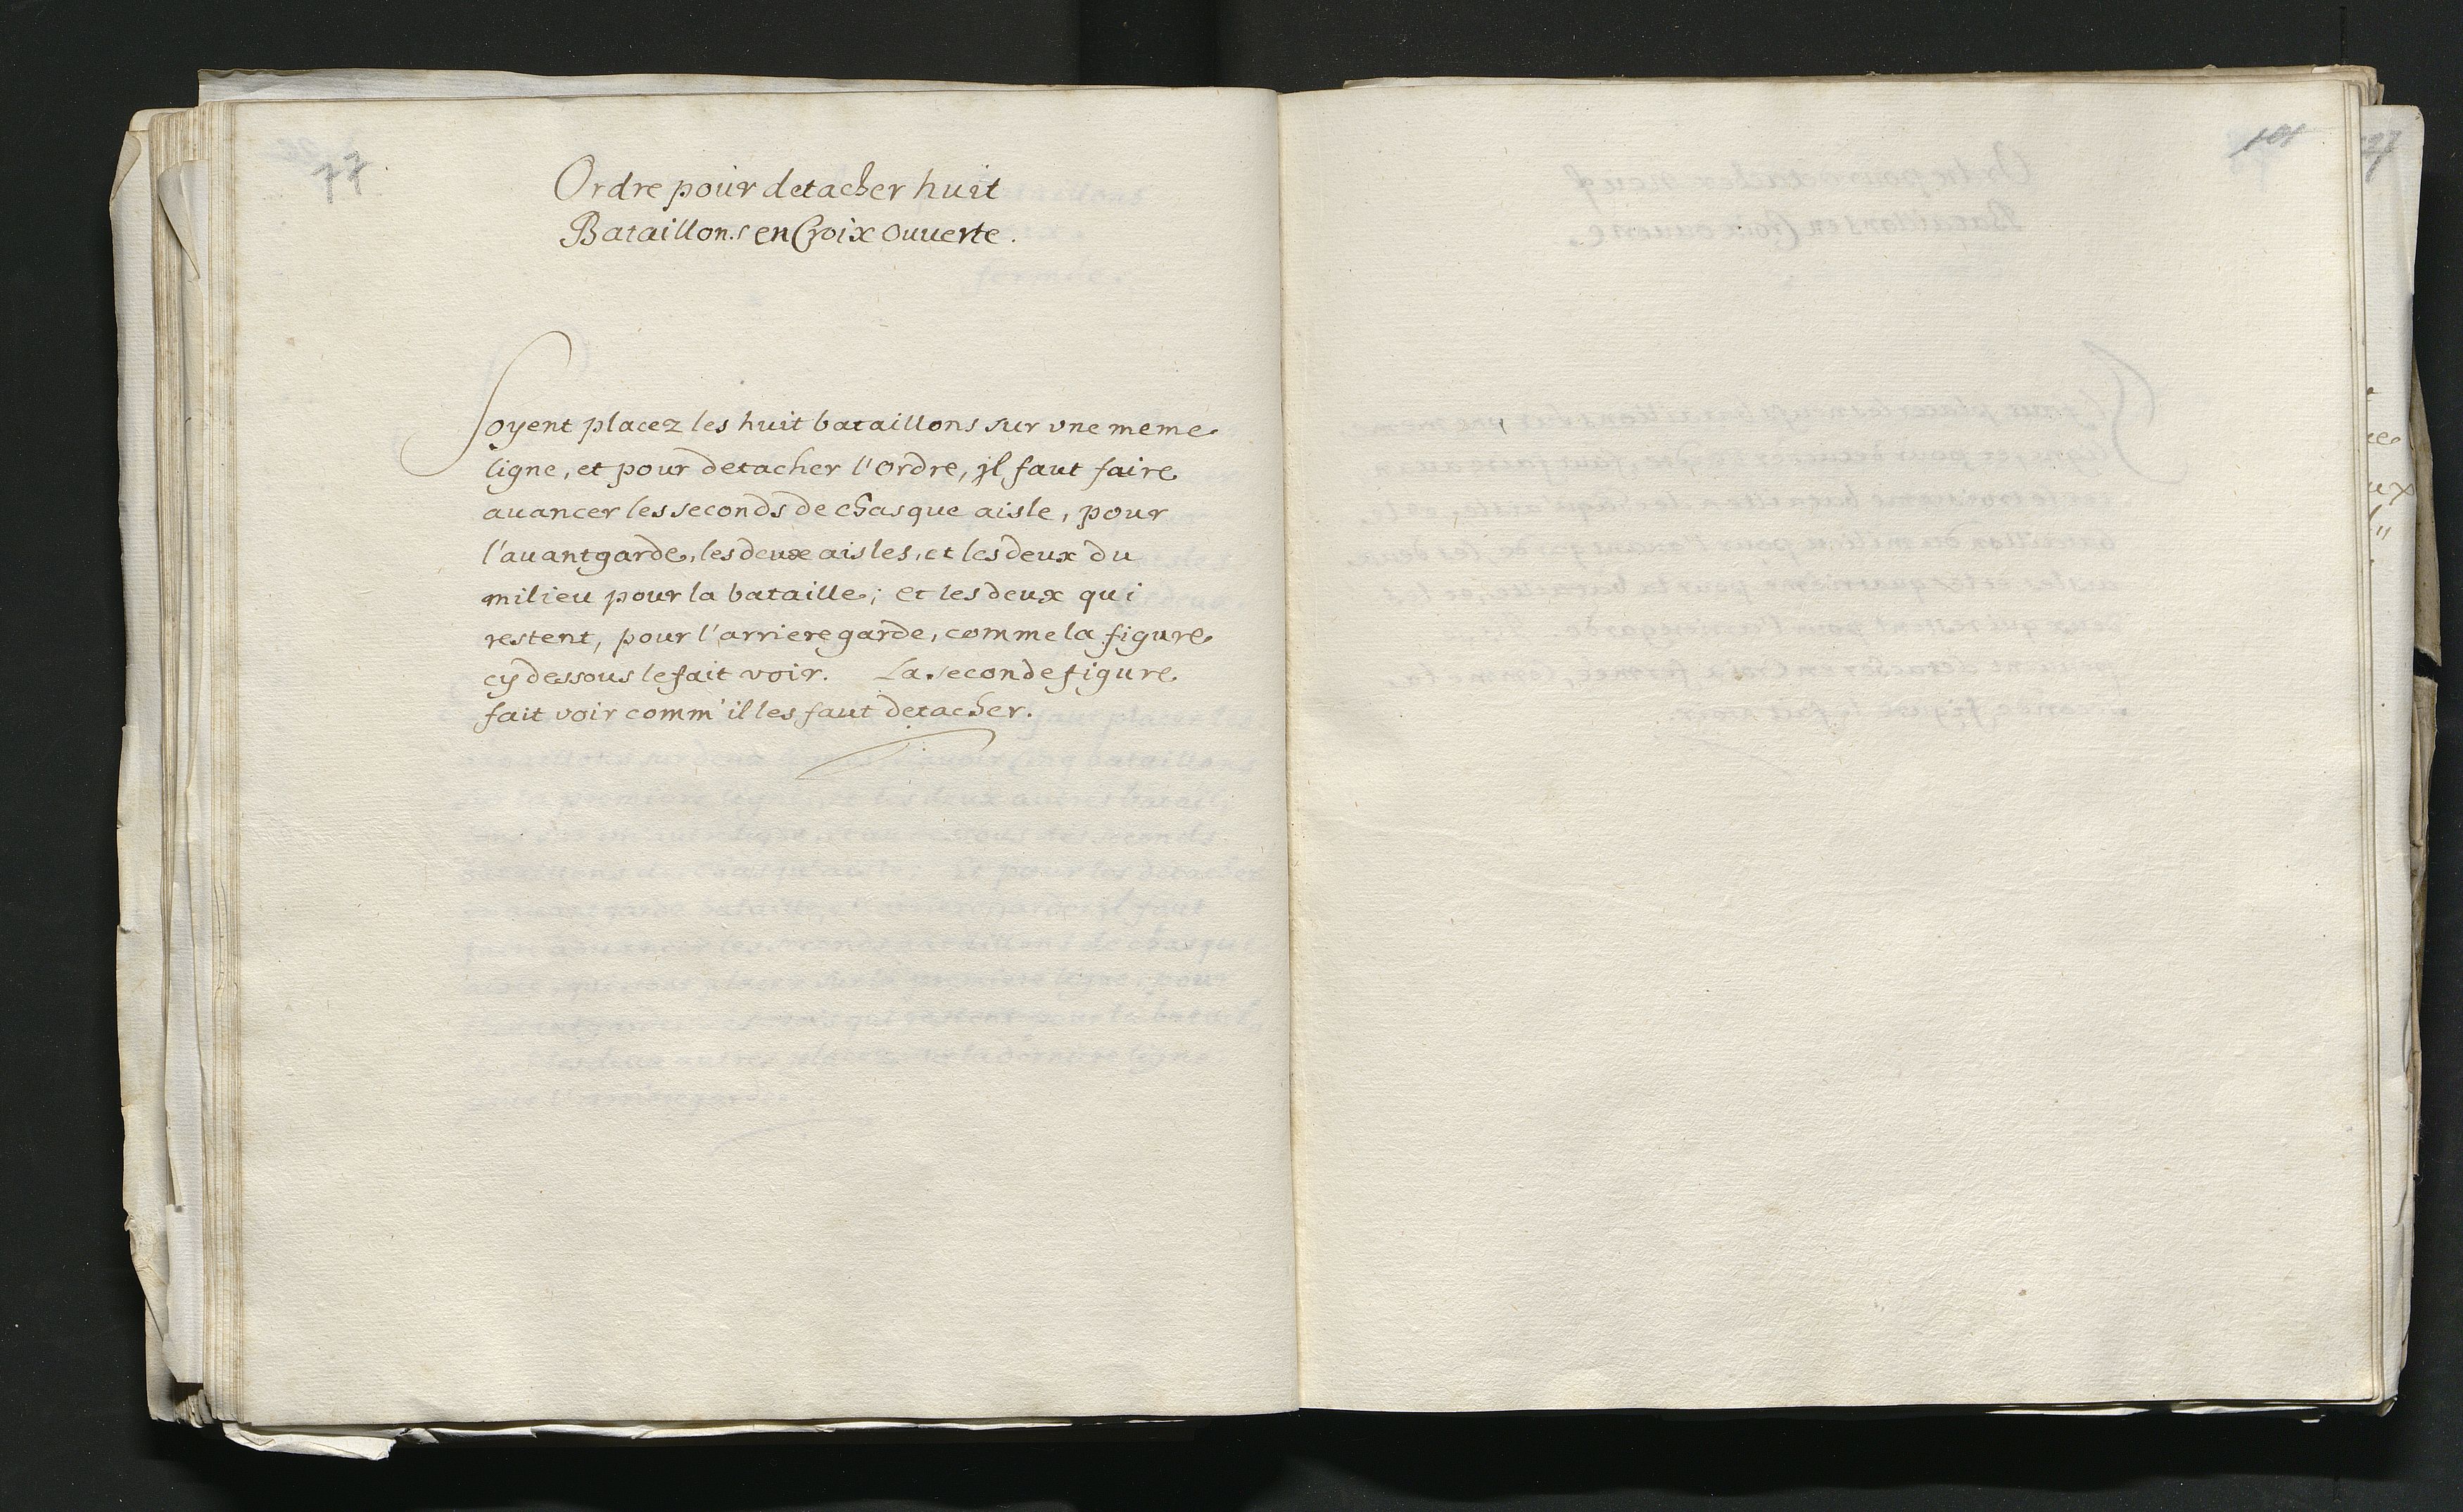 77
Ordre pour detacher huit
Bataillons en Croix ouuerte.
Soyent placez les huit bataillons sur vne meme
ligne, et pour detacher l'ordre, jl faut faire
auancer les seconds de chasque aisle, pour
l'auantgarde, les deux aisles, et les deux du
milieu pour la bataille; et les deux qui
restent, pour l'arrieregarde, comme la figure
cy dessous le fait voir. La seconde figure
fait voir comm'il les faut detacher.
101